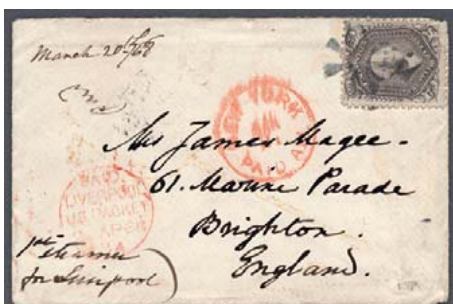 March 20th/68
NEW YORK
PAID A
Mrs James Magee
61. Marine Parade
Brighton.
England.
PAID
LIVERPOOL
US PACKET
AP 68
1st steamer
for Liverpool